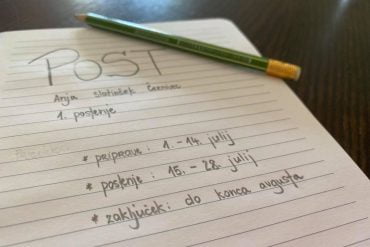 POST
Anja Slatinšek Černivec
1. postenje
* priprave : 1. - 14. julij
* postenje : 15. - 28. julij
* zaključek: do konca avgusta